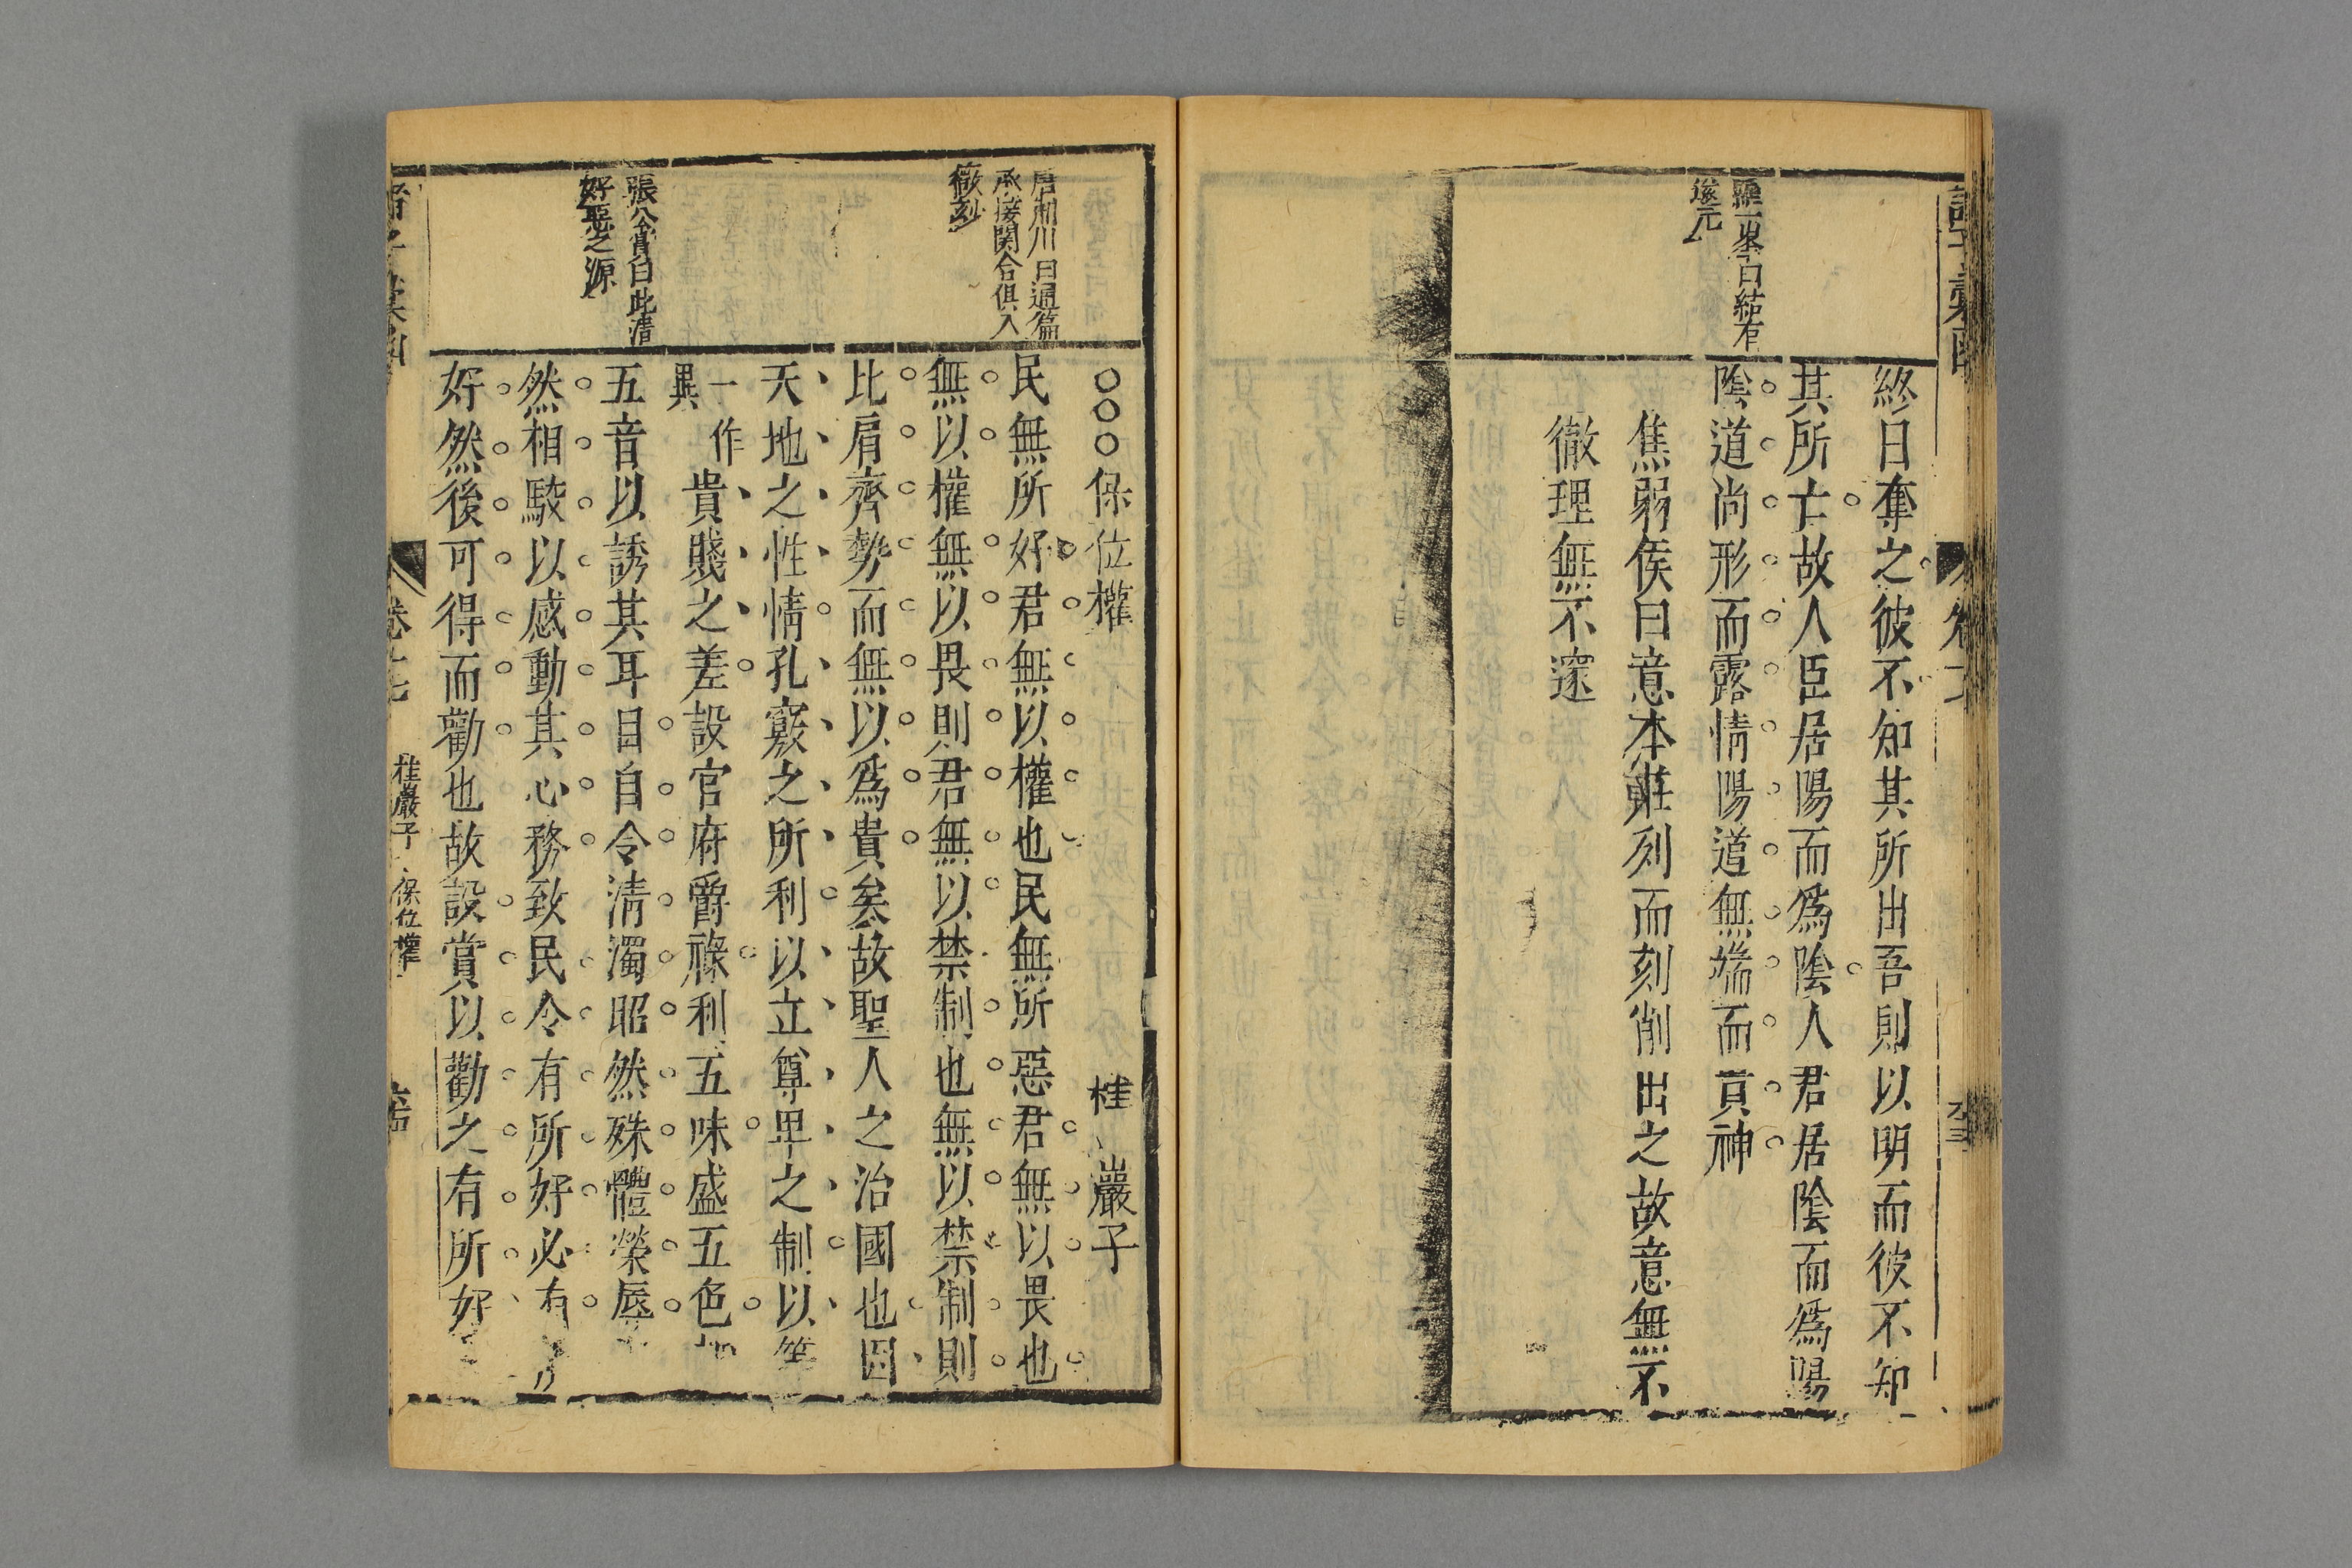 羅一峯曰結有
邃元
終日奪之彼不知其所出吾則以明而彼不知
其所亡故人臣居陽而爲陰人君居陰而爲陽
陰道尚形而露情陽道無端而貴神
焦弱侯曰意本莊列而刻削出之故意無不
徹理無不邃
唐荊川曰通篇
承接関合俱入
微玅
張公僑曰此清
好惡之源
○○○保位權 桂巖子
民無所好君無以權也民無所惡君無以畏也
無以權無以畏則君無以禁制也無以禁制則
比肩齊勢而無以爲貴矣故聖人之治國也因
天地之性情孔竅之所利以立尊卑之制以等
一作異貴賤之差設官府爵祿利五味盛五色
五音以誘其耳目自令清濁昭然殊體榮辱
然相駮以感動其心務致民令有所好必有
好然後可得而勸也故設賞以勸之有所好
卷十七
桂巖子
保位權